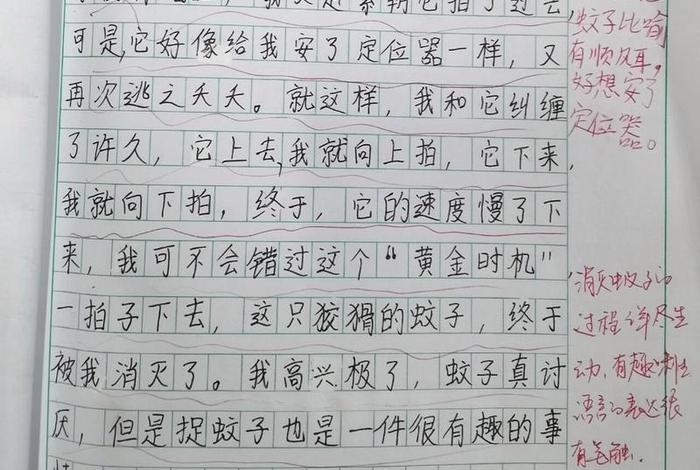 可是,它好像给我安了定位器一样，又
再次逃之夭夭。就这样，我和它纠缠
了许久，它上去,我就向上拍，它下来，
我就向下拍，终于，它的速度慢了下
来，我可不会错过这个“黄金时机”
一拍子下去，这只狡猾的蚊子，终于
被我消灭了。我高兴极了，蚊子真讨
厌，但是捉蚊子也是一件很有趣的事
蚊子比喻
有顺风耳。
好想安了
定位器。
消灭蚊子的
过程详尽生
动,有趣
语言的表达很
有笔触.